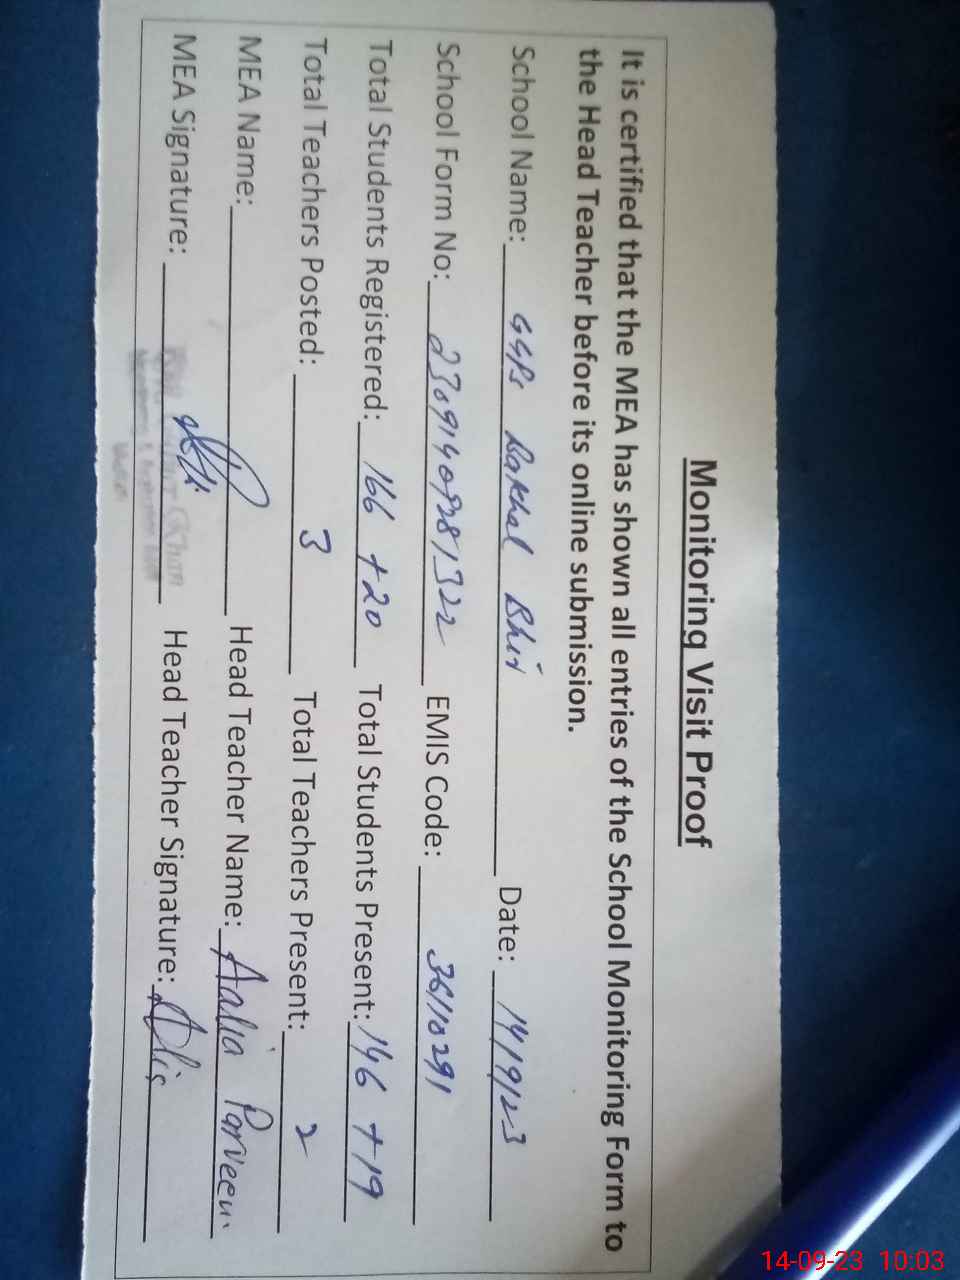 Monitoring Visit Proof
It is certified that the MEA has shown all entries of the School Monitoring Form to
the Head Teacher before its online submission.
School Name: GGPS Dakhal Bhir Date: 14/9/23
School Form No: EMIS Code: 36110291
Total Students Registered: 166 +20 Total Students Present: 146 +19
Total Teachers Posted: 3 Total Teachers Present: 2
MEA Name: Head Teacher Name: Aalia Parveen
MEA Signature: Head Teacher Signature:
14-09-23 10:03